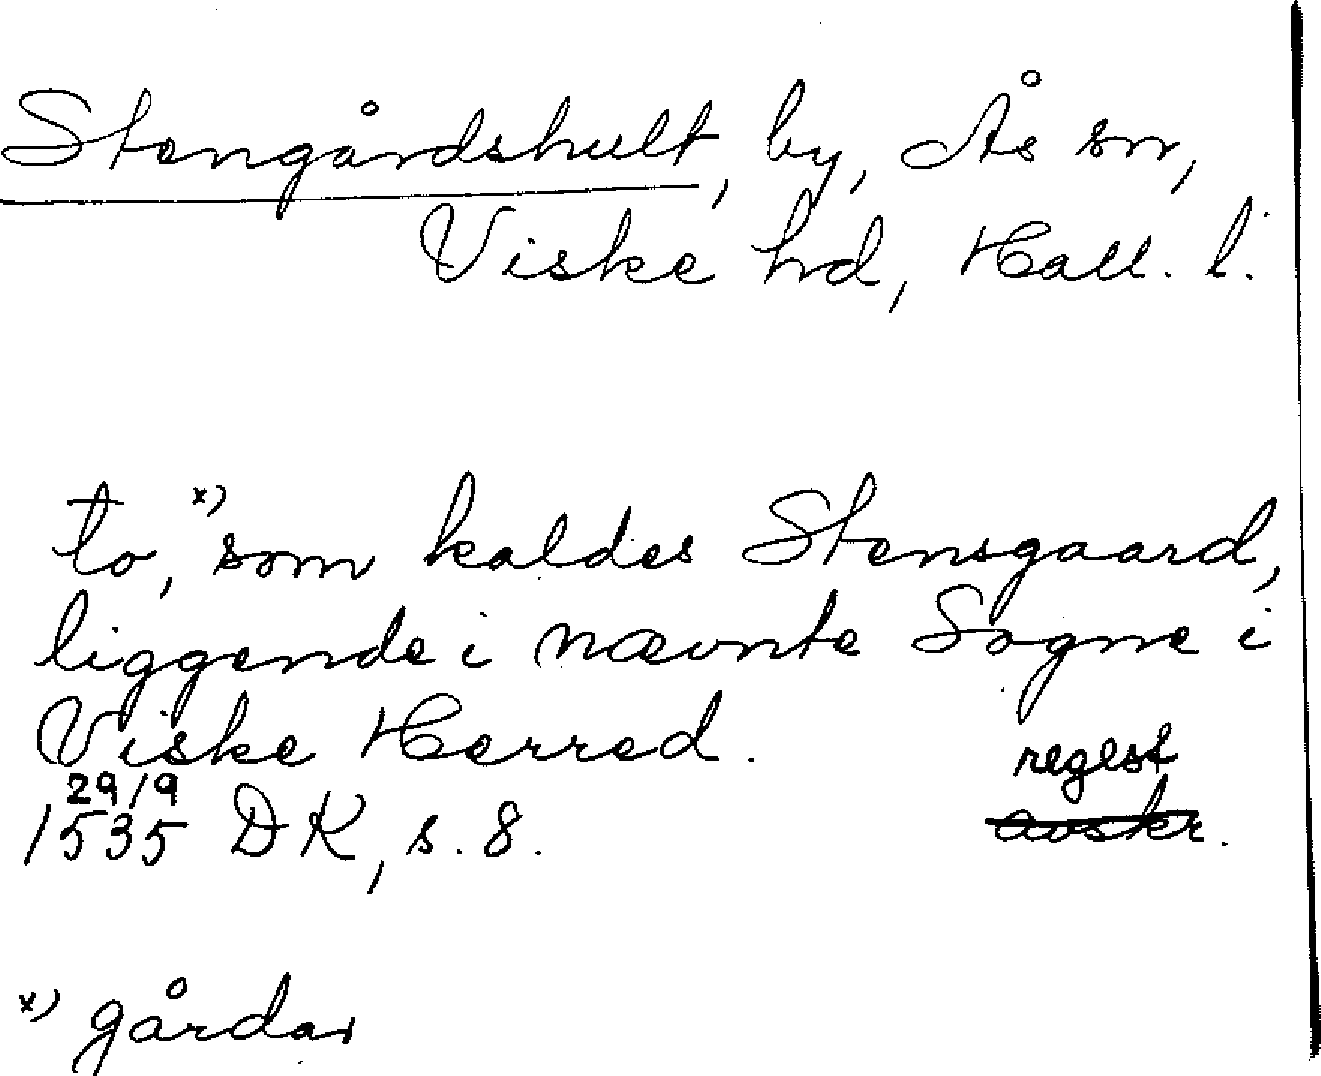 Stengårdshult, by, Ås sn,
Viske hd, Hall. l.
to,ˣ⁾ som kaldes Stensgaard,
liggende i nævnte Sogne i
Viske Herred.
regest
29/9
1535 DK, s. 8. avskr.
ˣ⁾ gårdar